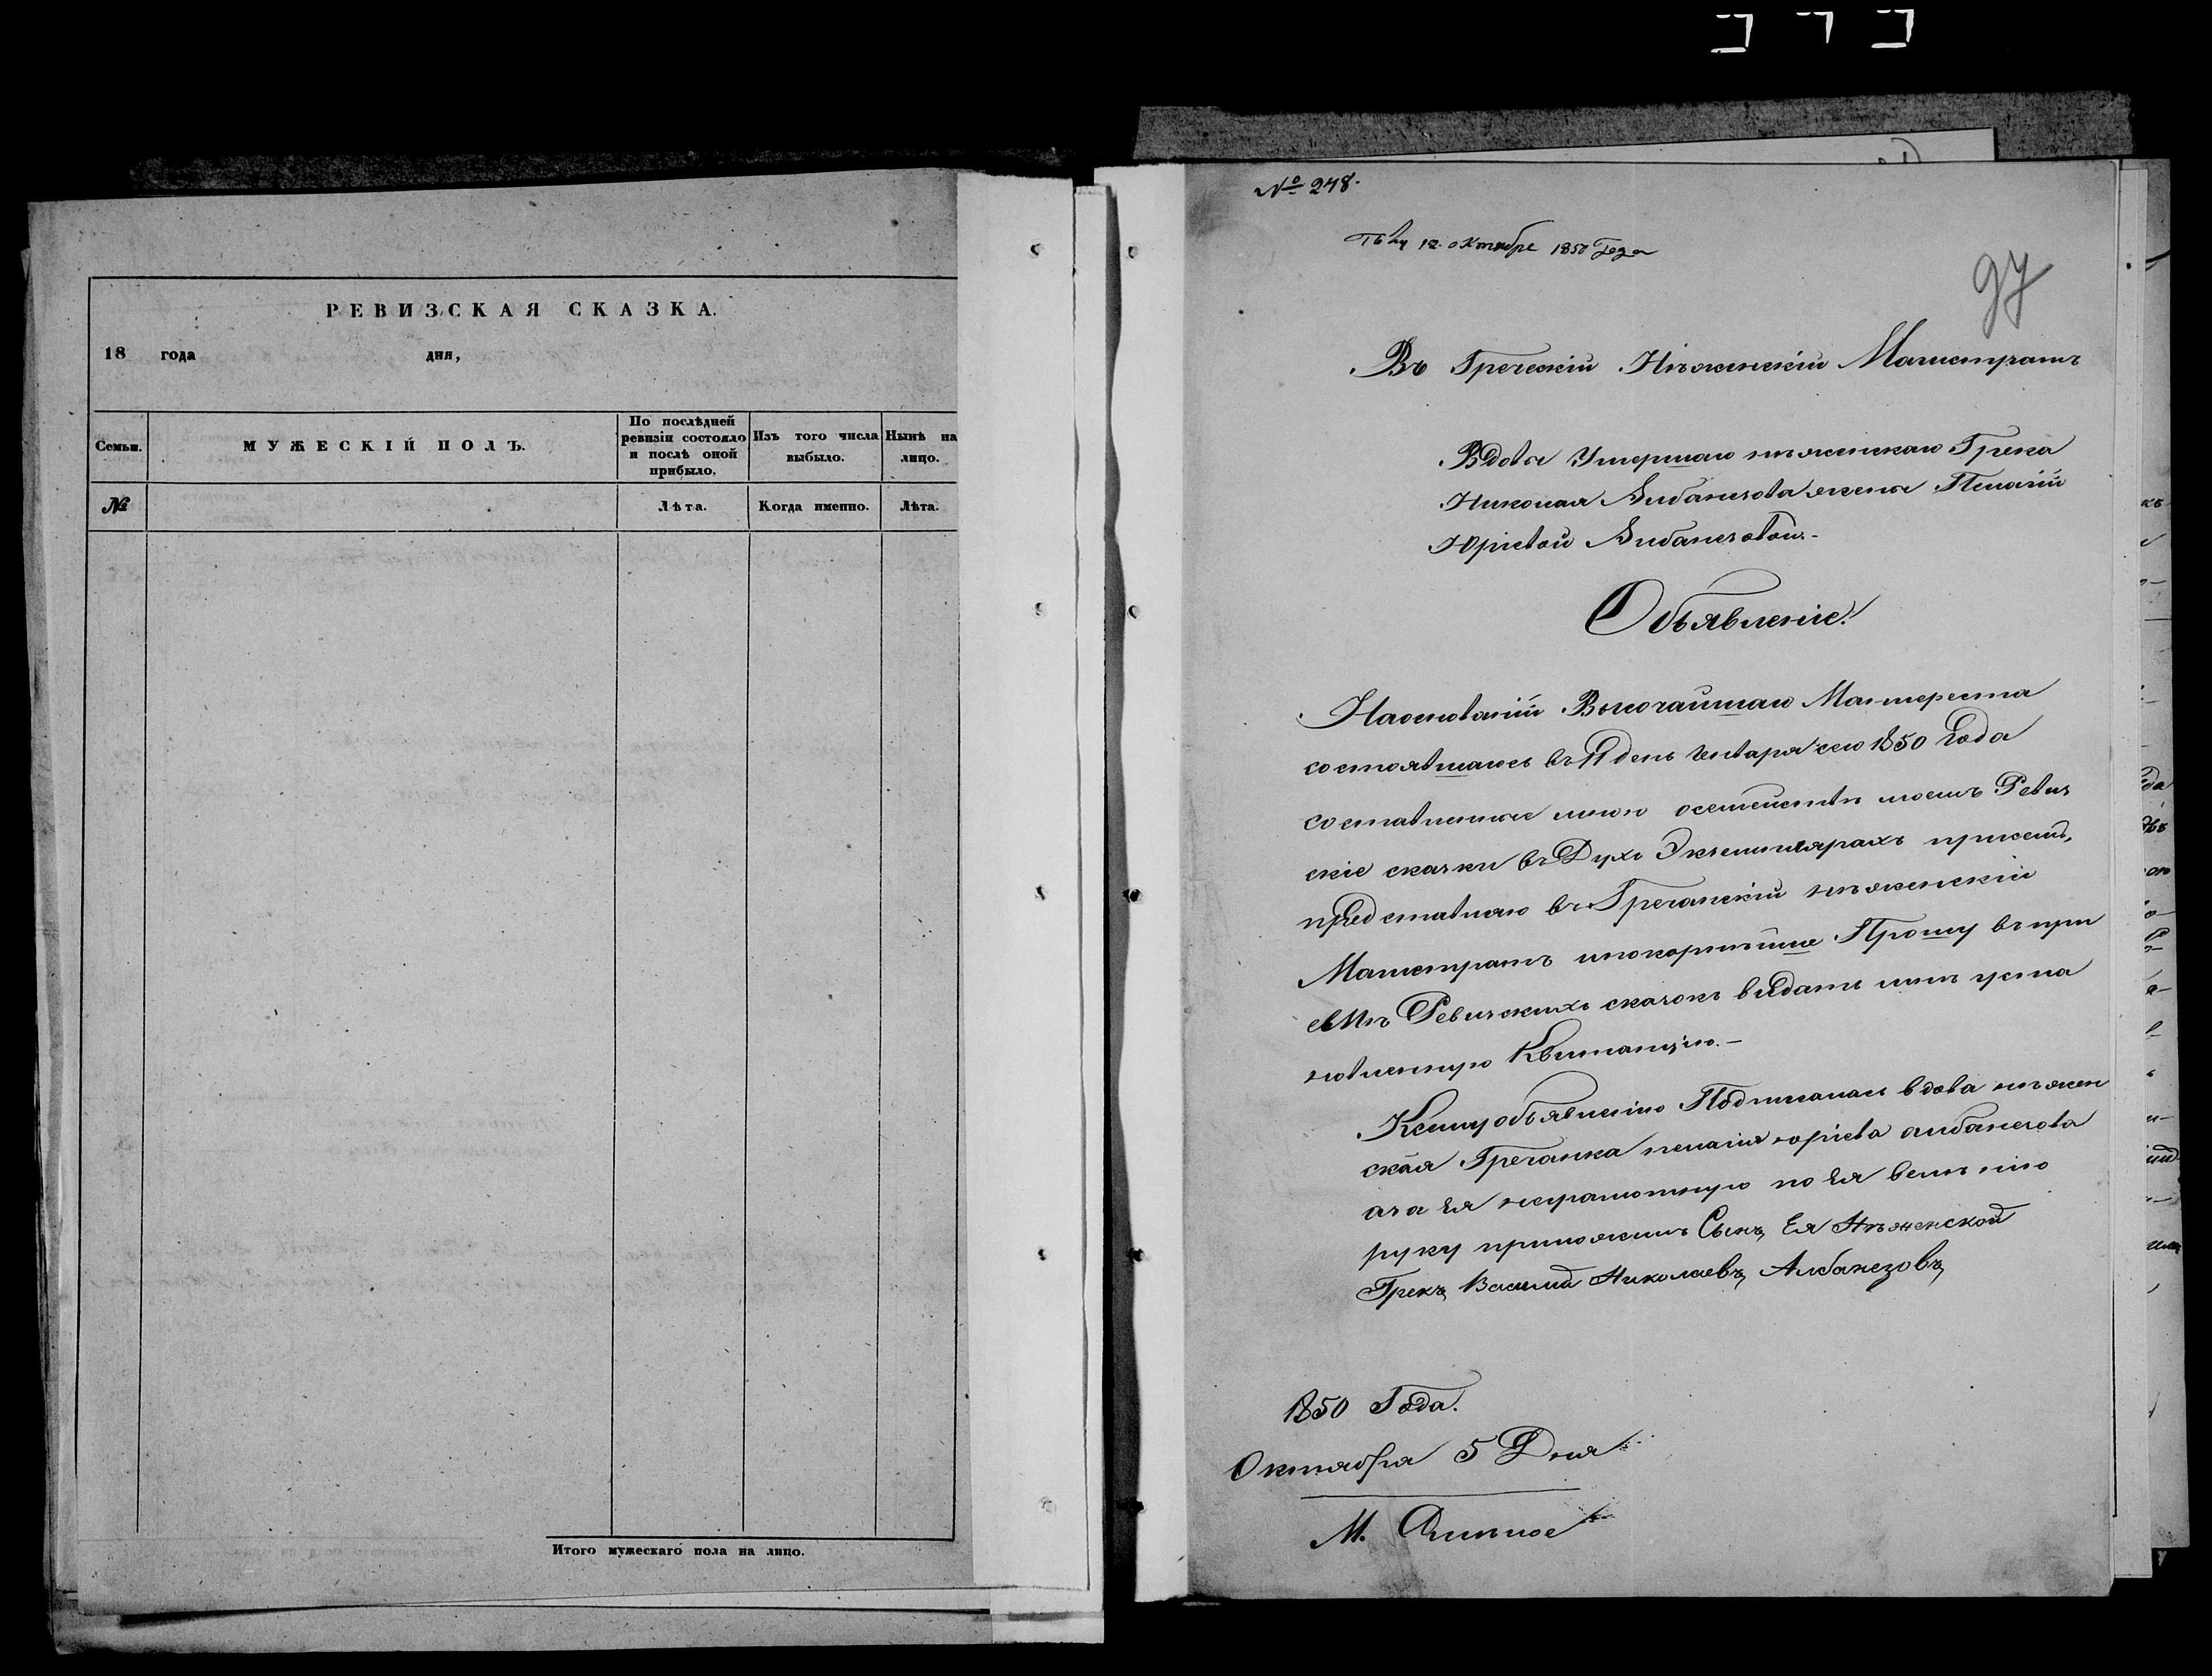 РЕВИЗСКАЯ СКАЗКА.
18 года дня,
Семьи. МУЖЕСКІЙ ПОЛЪ. По послѣдней ревизіи состояло и послѣ оной прибыло. Изъ того числа выбыло. Нынѣ на лицо.
№ Лѣта. Когда именно. Лѣта.
Итого мужескаго пола на лицо.
№ 248.
12 октября 1850 года
97
Въ Греческій Нѣженскій Магистратъ
Вдови Умершаго нѣженскаго Грека
Николая Албанезова жена Пелагіи
Юріевой Албанезовой.-
Объявленіе!
Наоснованіи Высочайшаго Манифеста
состоявшагось въ 11 день Генваря сего 1850 Года
составленные мною осемействѣ моемъ Ревиз
скіе сказки въ Двухъ Экземплярахъ присемъ,
представляю въ Гречанскій нѣженскій
Магистратъ ипокорнѣйше Прошу въ при
емѣ Ревизскихъ сказокъ видать мнѣ уста
новленную Квитанцію.-
Ксему объявленію Подписалась вдова нѣжен
ская Гречанка пелагія юріева албанезова
аза Ея неграмотную по Ея велѣнію
руку приложилъ Сынъ Ея Нѣженской
Грекъ Василій Николаевъ Албанезовъ
1850 Года.
Октября 5 Дня
М.